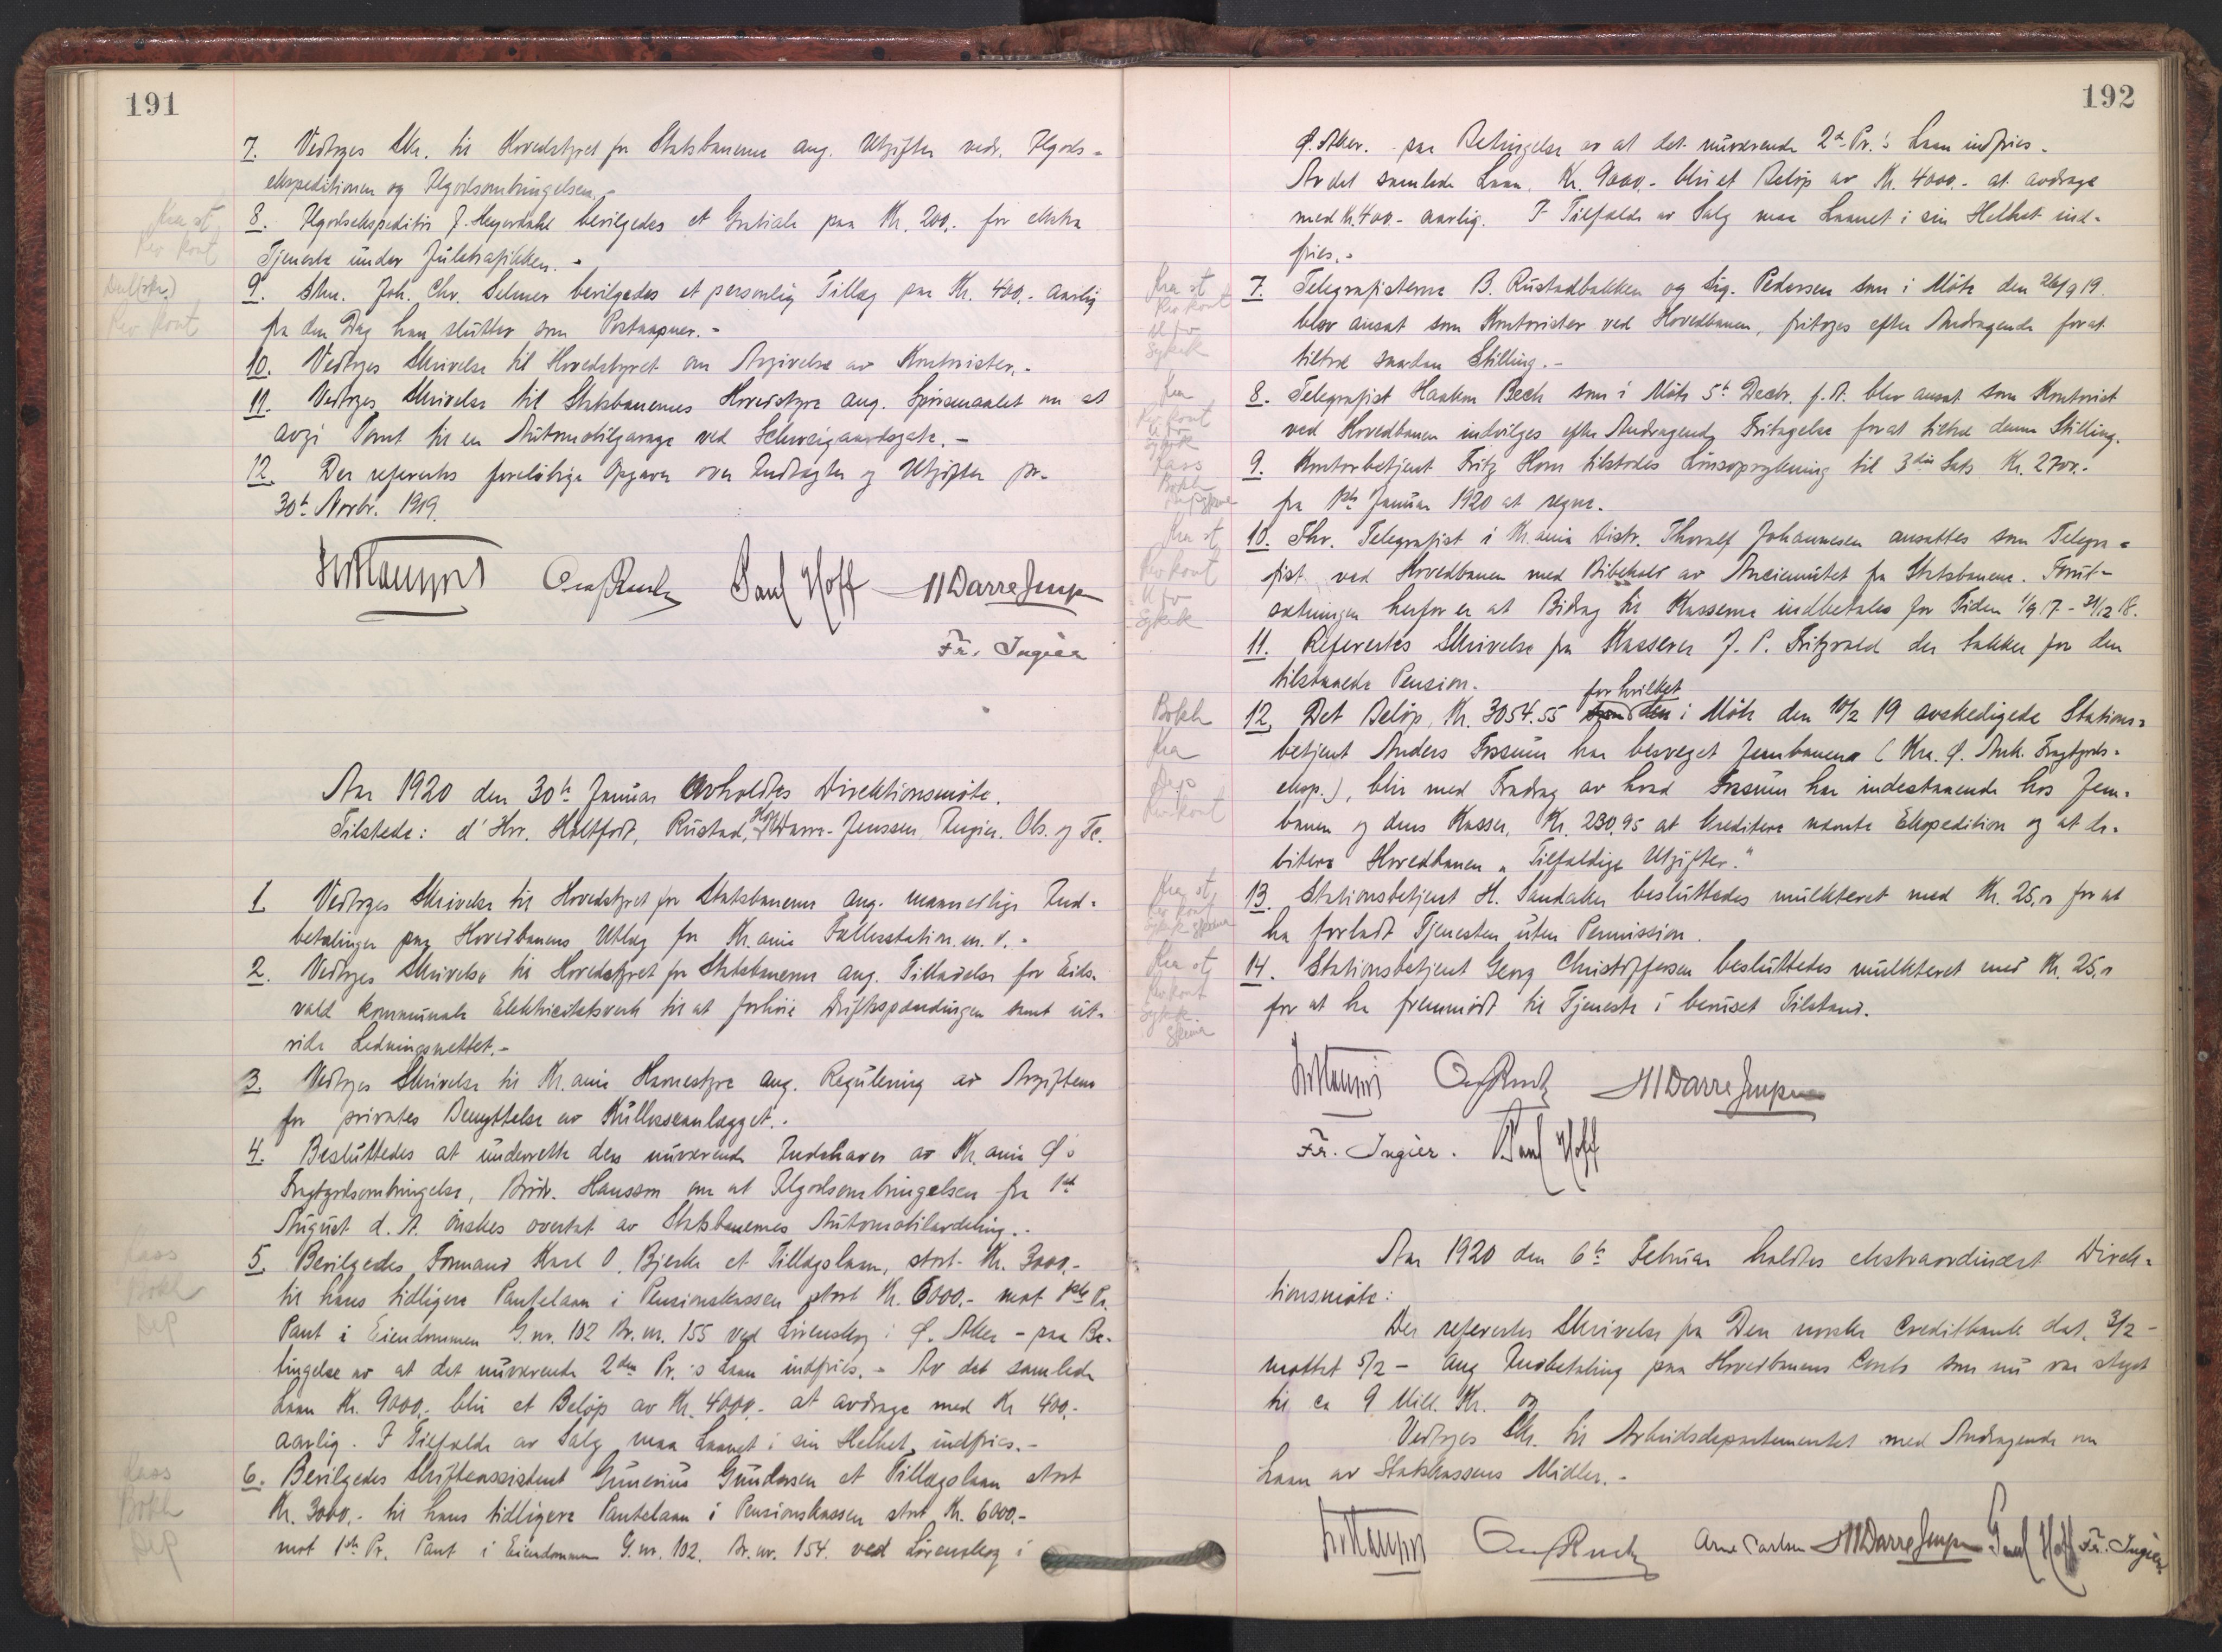 191
7. Vedtoges Skr. til Hovedstyret for Statsbanerne ang. Utgifter vedr. Ilgods-
ekspeditionen og Ilgodsombringelsen.-
Kra st
Rev kont
8. Ilgodsekspeditør J. Heyerdahl bevilgedes et Gratiale paa Kr. 200,- for ekstra
Tjeneste under Juletrafikken.-
Rev kont
9. Stm. Joh. Chr. Selmer bevilgedes et personlig Tillæg paa Kr. 400,- aarlig
fra den Dag han slutter som Postaapner.-
10. Vedtoges Skrivelse til Hovedstyret om Avgivelse av Kontorister.-
11. Vedtoges Skrivelse til Statsbanernes Hovedstyre ang. Spørsmaalet om at
avgi Tomt til en Automobilgarage ved Schweigaardsgate.-
12. Der refertes foreløbige Opgaver over Indtægter og Utgifter pr.
30te Novbr. 1919.
Paul Hoff
Fr. Ingier
Aar 1920 den 30te Januar avholdtes Direktionsmøte.
Tilstede: d'Hrr. Holtfodt, Rustad, Hoff, Darre-Jenssen, Ingier. Obs. og Tc.
1. Vedtoges Skrivelse til Hovedstyret for Statsbanerne ang. maanedlige Ind-
betalinger paa Hovedbanens Utlæg for Kr.ania Fællesstation m.v.-
2. Vedtoges Skrivelse til Hovedstyret for Statsbanerne ang. Tilladelse for Eids-
vold kommunale Elektricitetsverk til at forhøie Driftsspændingen samt ut-
vide Ledningsnettet.-
3. Vedtoges Skrivelse til Kr.ania Havnestyre ang. Regulering av Avgiften
for privates Benyttelse av Kullosseanlægget.-
4. Besluttedes at underrette den nuværende Indehaver av Kr.ania Ø's
Fragtgodsombringelse, Brdr. Hansson om at Ilgodsombringelsen fra 1st
August d.A. ønskes overtat av Statsbanernes Automobilavdeling.-
Kass
Bokh
Dep
5. Bevilgedes Formand Karl O. Bjerke et Tillægslaan, stort Kr. 3000,-
til hans tidligere Pantelaan i Pensionskassen stort Kr. 6000,- mot 1ste Pr.
Pant i Eiendommen G.nr. 102 Br.nr. 155 ved Lørenskog i Ø. Aker - paa Be-
tingelse av at det nuværende 2den Pr.'s Laan indfries.- Av det samlede
Laan Kr. 9000,- blir et Beløp av Kr. 4000,- at avdrage med Kr 400,-
aarlig. I Tilfælde av Salg maa Laanet i sin Helhet indfries.-
Kass
Bokh
Dep
6. Bevilgedes Skifteassistent Gunerius Gundersen et Tillægslaan stort
Kr. 3000,- til hans tidligere Pantelaan i Pensionskassen stort Kr. 6000,-
mot 1ste Pr. Pant i Eiendommen G.nr. 102. Br.nr. 154. ved Lørenskog i
192
Ø. Aker. paa Betingelse av at det nuværende 2d Pr.'s Laan indfries.
Av det samlede Laan, Kr. 9000,- blir et Beløp av Kr. 4000.- at avdrage
med Kr. 400.- aarlig. I Tilfælde av Salg maa Laanet i sin Helhet ind-
fries.-
Kra st
Rev kont
Sykek
7. Telegrafisterne B. Rustadbakken og Sig. Pedersen som i Møte den 26/9 19.
blev ansat som Kontorister ved Hovedbanen, fritoges efter Andragende for at
tiltræ saadan Stilling.-
Kra
Rev kont
Sykek
8. Telegrafist Haakon Bech som i Møte 5te Decbr. f.A. blev ansat som Kontorist
ved Hovedbanen indvilges efter Andragende Fritagelse for at tiltræ denne Stilling.
Kass
Bokh
9. Kontorbetjent Fritz Horn tilstodes Lønsoprykning til 3die Sats Kr. 2700.-
fra 1ste Januar 1920 at regne.
Kra st
Rev kont
Sykek
10. Fhv. Telegrafist i Kr.ania Distr. Thoralf Johannesen ansattes som Telegra-
fist ved Hovedbanen med Bibehold av Ancienitet fra Statsbanene. Forut-
sætningen herfor er at Bidrag til Kasserne indbetales for Tiden 1/9 17 - 31/12 18.
11. Refertes Skrivelse fra Kasserer J. P. Fritzvold der takker for den
tilstaaede Pension.
Bokh
Kra
Dep
Rev kont
12. Det Beløp, Kr. 3054.55 for hvilket den i Møte den 10/2 19 avskedigede Stations-
betjent Anders Fossum har besveget Jernbanene (Kra. Ø. Ank. Fragtgods-
eksp.), blir med Fradrag av hvad Fossum har indestaaende hos Jern-
banen og dens Kasser, Kr. 230,95 at kreditere nævnte Ekspedition og at de-
bitere Hovedbanen "Tilfældige Utgifter."
Kra st
Rev kont
Sykek
13. Stationsbetjent H. Sandaker besluttedes mulkteret med Kr. 25,- for at
ha forladt Tjenesten uten Permission.
Kra st
Rev kont
Sykek
14. Stationsbetjent Georg Christoffersen besluttedes mulkteret med Kr. 25,-
for at ha fremmødt til Tjeneste i beruset Tilstand.
Fr. Ingier. Paul Hoff
Aar 1920 den 6te Februar holdtes ekstraordinært Direk-
tionsmøte:
Der refertes Skrivelse fra Den norske Creditbank dat. 3/2 -
mottat 5/2 - ang Indbetaling paa Hovedbanens Conto som nu var steget
til ca 9 Mill. Kr. og
Vedtoges Skr. til Arbeidsdepartementet med Andragende om
Laan av Statskassens Midler.-
Paul Hoff Fr. Ingier